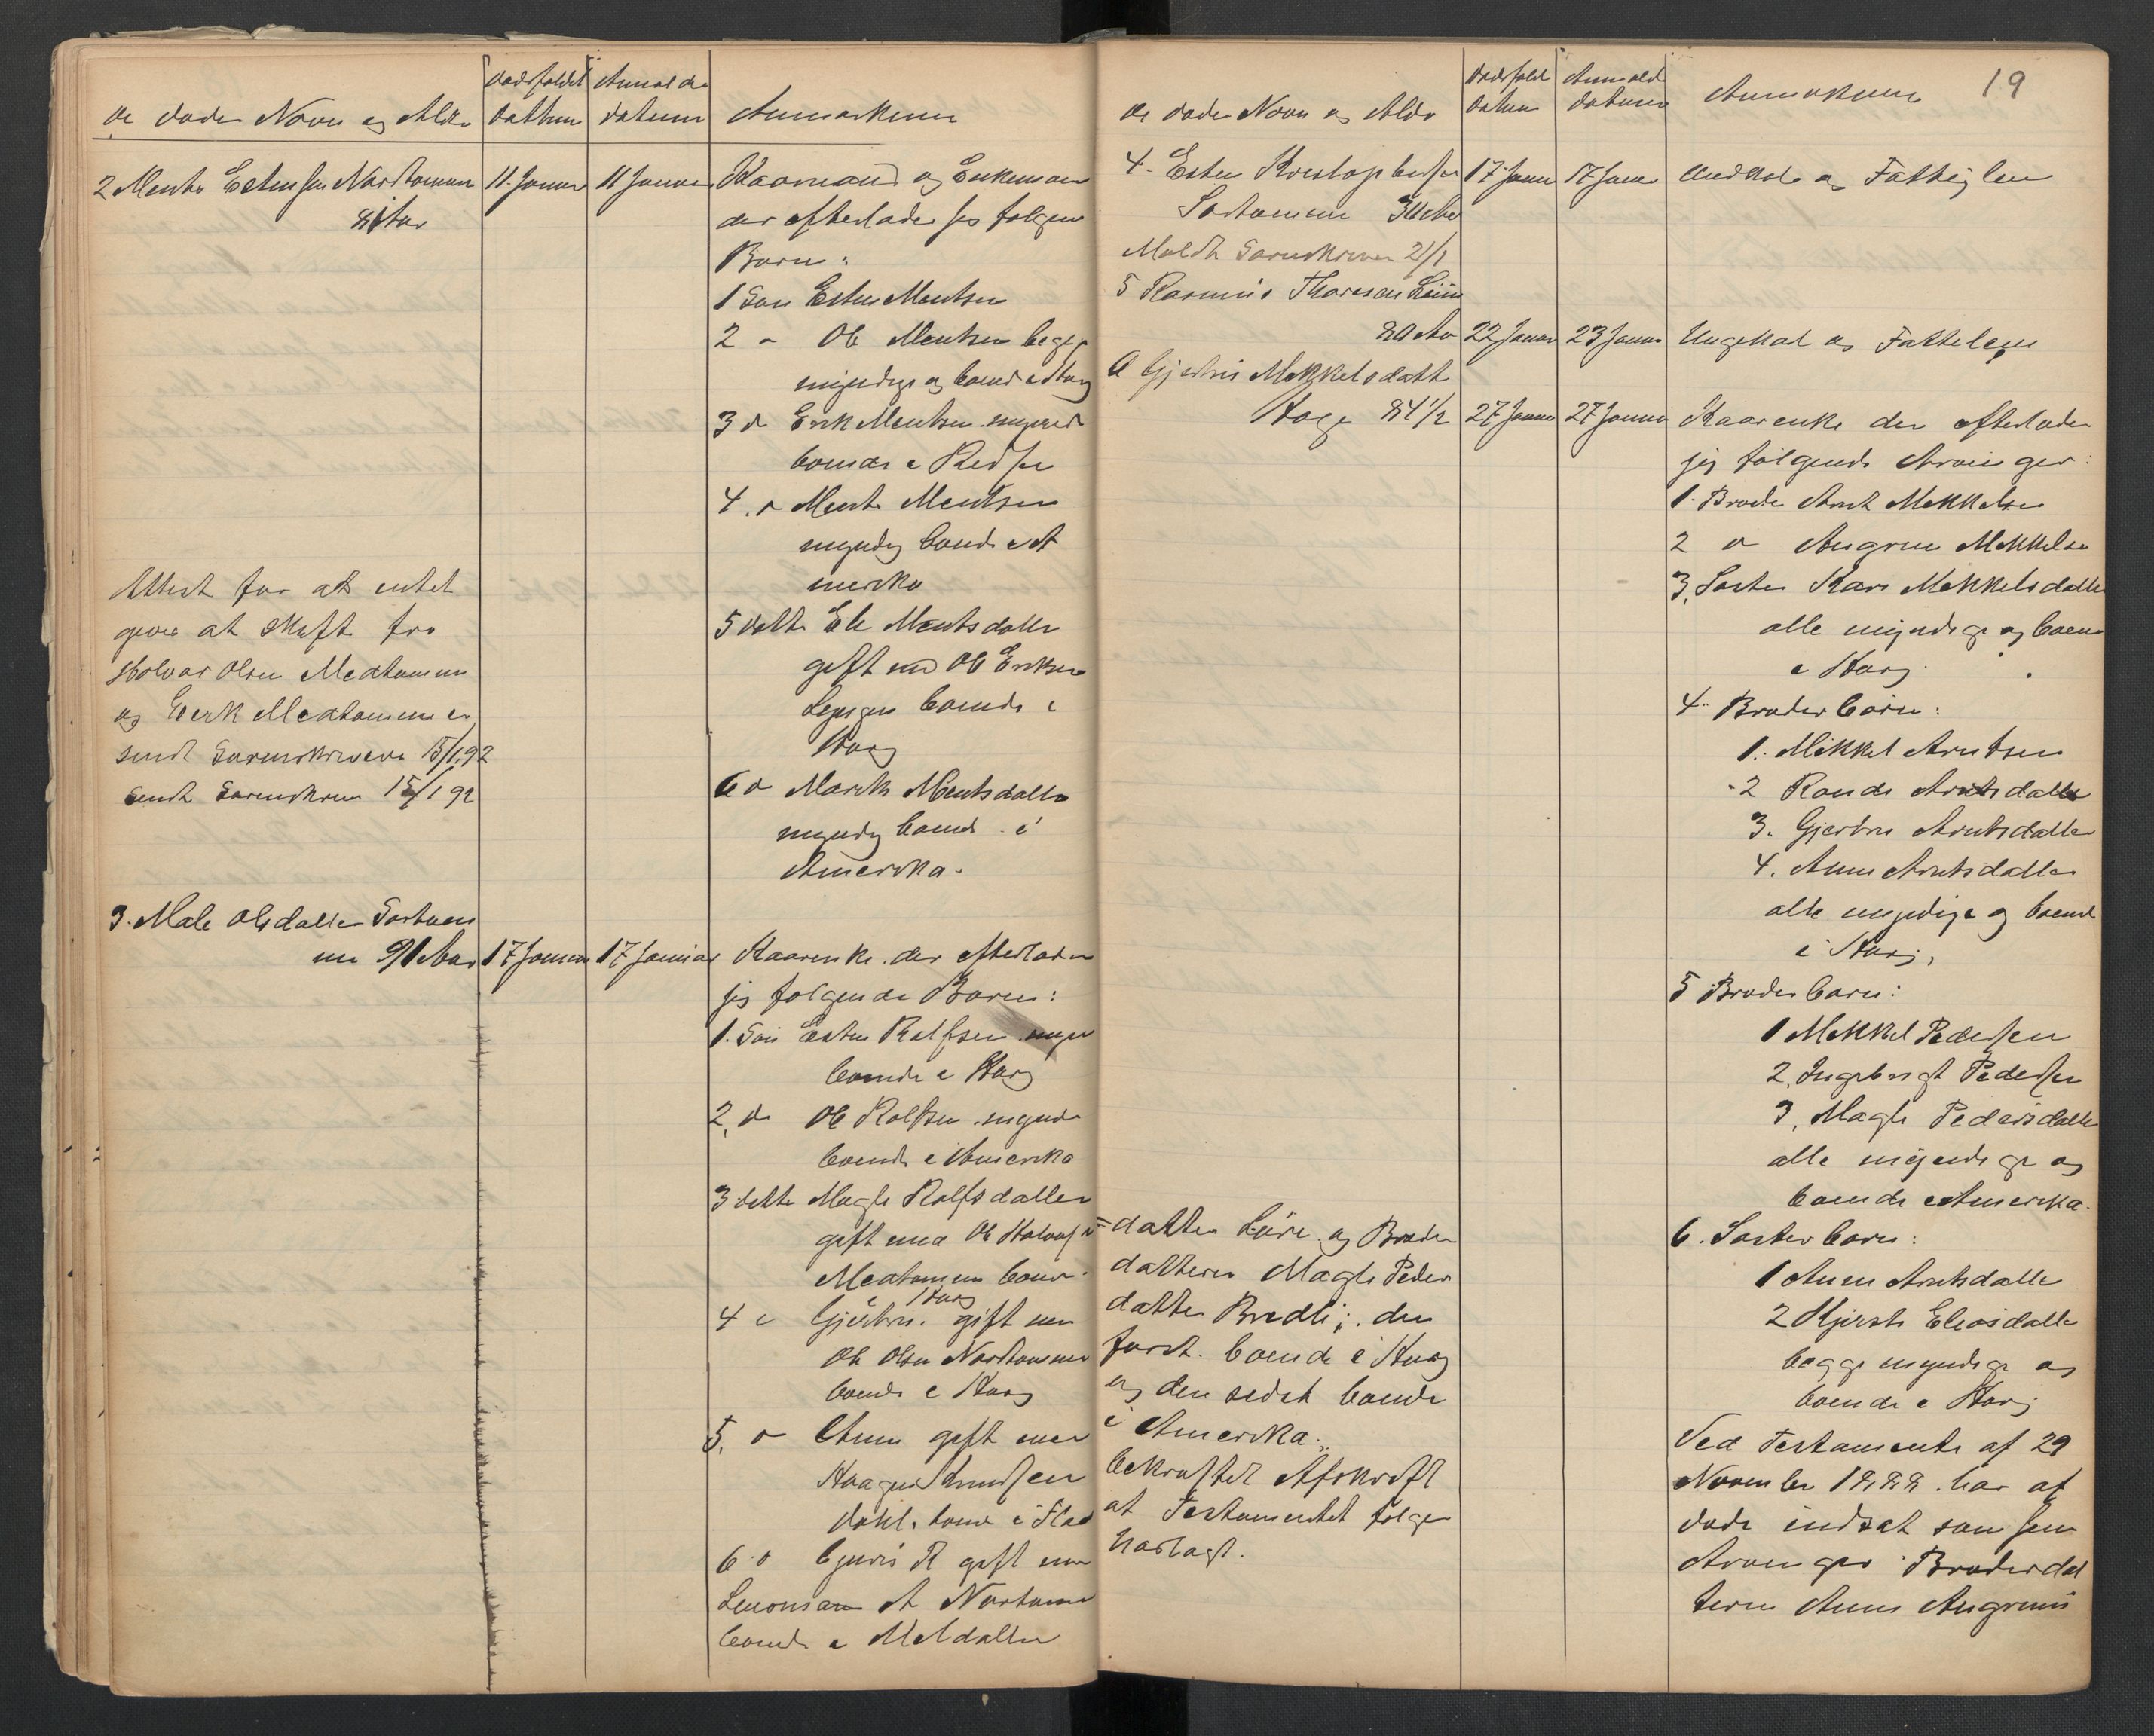 de døde Navn og Alder
dødsfaldet datum
Anmeldes datum
Anmærkning
2 Ments Estensen Nordtømme
81 Aar
11. Januar
11 Januar
Kaarmand og Enkemand
der efterlader sig følgen
Børn:
1 Søn Esten Mentsen
2 - Ole Mentsen begge
myndige og boende i Horg
3 d Erik Mentsen myndi
boende i
4. d Ments Mentsen
myndig boende i A
merika
5 datte Eli Mentsdatter
gift med Ole Eriksen
boende i
Horg
6 d Marit Mentsdatter
myndig boende i
Amerika.
Attest for at intet
er at Skift fra
Halvor Olsen Medtømme
og Eerk Medtømme er
sendt Sorenskriveren 15/1 92
sendt Sorenskriv 15/1 92
3. Male Olsdatter Sørtøm
me 91 Aar
17 Januar
17 Januar
Kaarenke der efterlader
sig følgende Børn:
1. Søn Esten Rolfsen myn
boende i Horg
2, d Ole Rolfsen mynd
boende i Amerika
3 datte Magli Rolfsdatter
gift med Ole Halvors
Medtømme boen
i Horg
4 d Gjertru. gift me
Ole Olsen Nordtømme
boende i Horg
5, d Anne gift med
Haagen Knudsen
Dahl. boend i Flaa
6 d Guri R gift me
A Nordtøme
boende i Meldalen
de døde Navn og Alder
dødsfald datum
Anmeld datum
Anmærkning
19
4. Esten Kristophersen
Sørtømme 34 Aar
17 Janu
17 Janu
Undkar og Fattiglem
Meldt Sorenskriver 21/1
5 Rasmus Thoresen
80 Aar
22 Januar
23 Januar
Ungkarl og Fattiglem
6 Gjertru Mikkelsdatt
Hage 84 1/2
27 Januar
27 Januar
Kaarenke der efterlader
sig følgende Arvinger:
1. Broder Arnt Mikkelsen
2 d Angrim Mikkelse
3. Søster Kari Mikkelsdatter
alle myndige og boen
i Horg
4. Broderbørn:
1. Mikkel Arntsen
2 Randi Arntsdatter
3. Gjertru Arntsdatter
4. Anne Arntsdatter
alle myndige og boend
i Horg,
5 Broderbørn:
1 Mikkel Pedersen
2, Ingebrigt Pedersen
3, Magli Pedersdatter
alle myndige og
boende i Amerika.
6. Søsterbørn:
1 Anne Arntsdatte
2 Kjersti Eliasdatte
begge myndige og
boende i Horg
Ved Testamente af 29
November 1888 har af
døde indsat som sin
Arvinger Broderdat
teren Anne Angrims
=datter Løre og Broder
datteren Magli Peders
datter Bredli; den
først. boende i Horg
og den sidst boende
i Amerika.
bekræftet Afskrift
af Testamentet følger
Vedlagt.